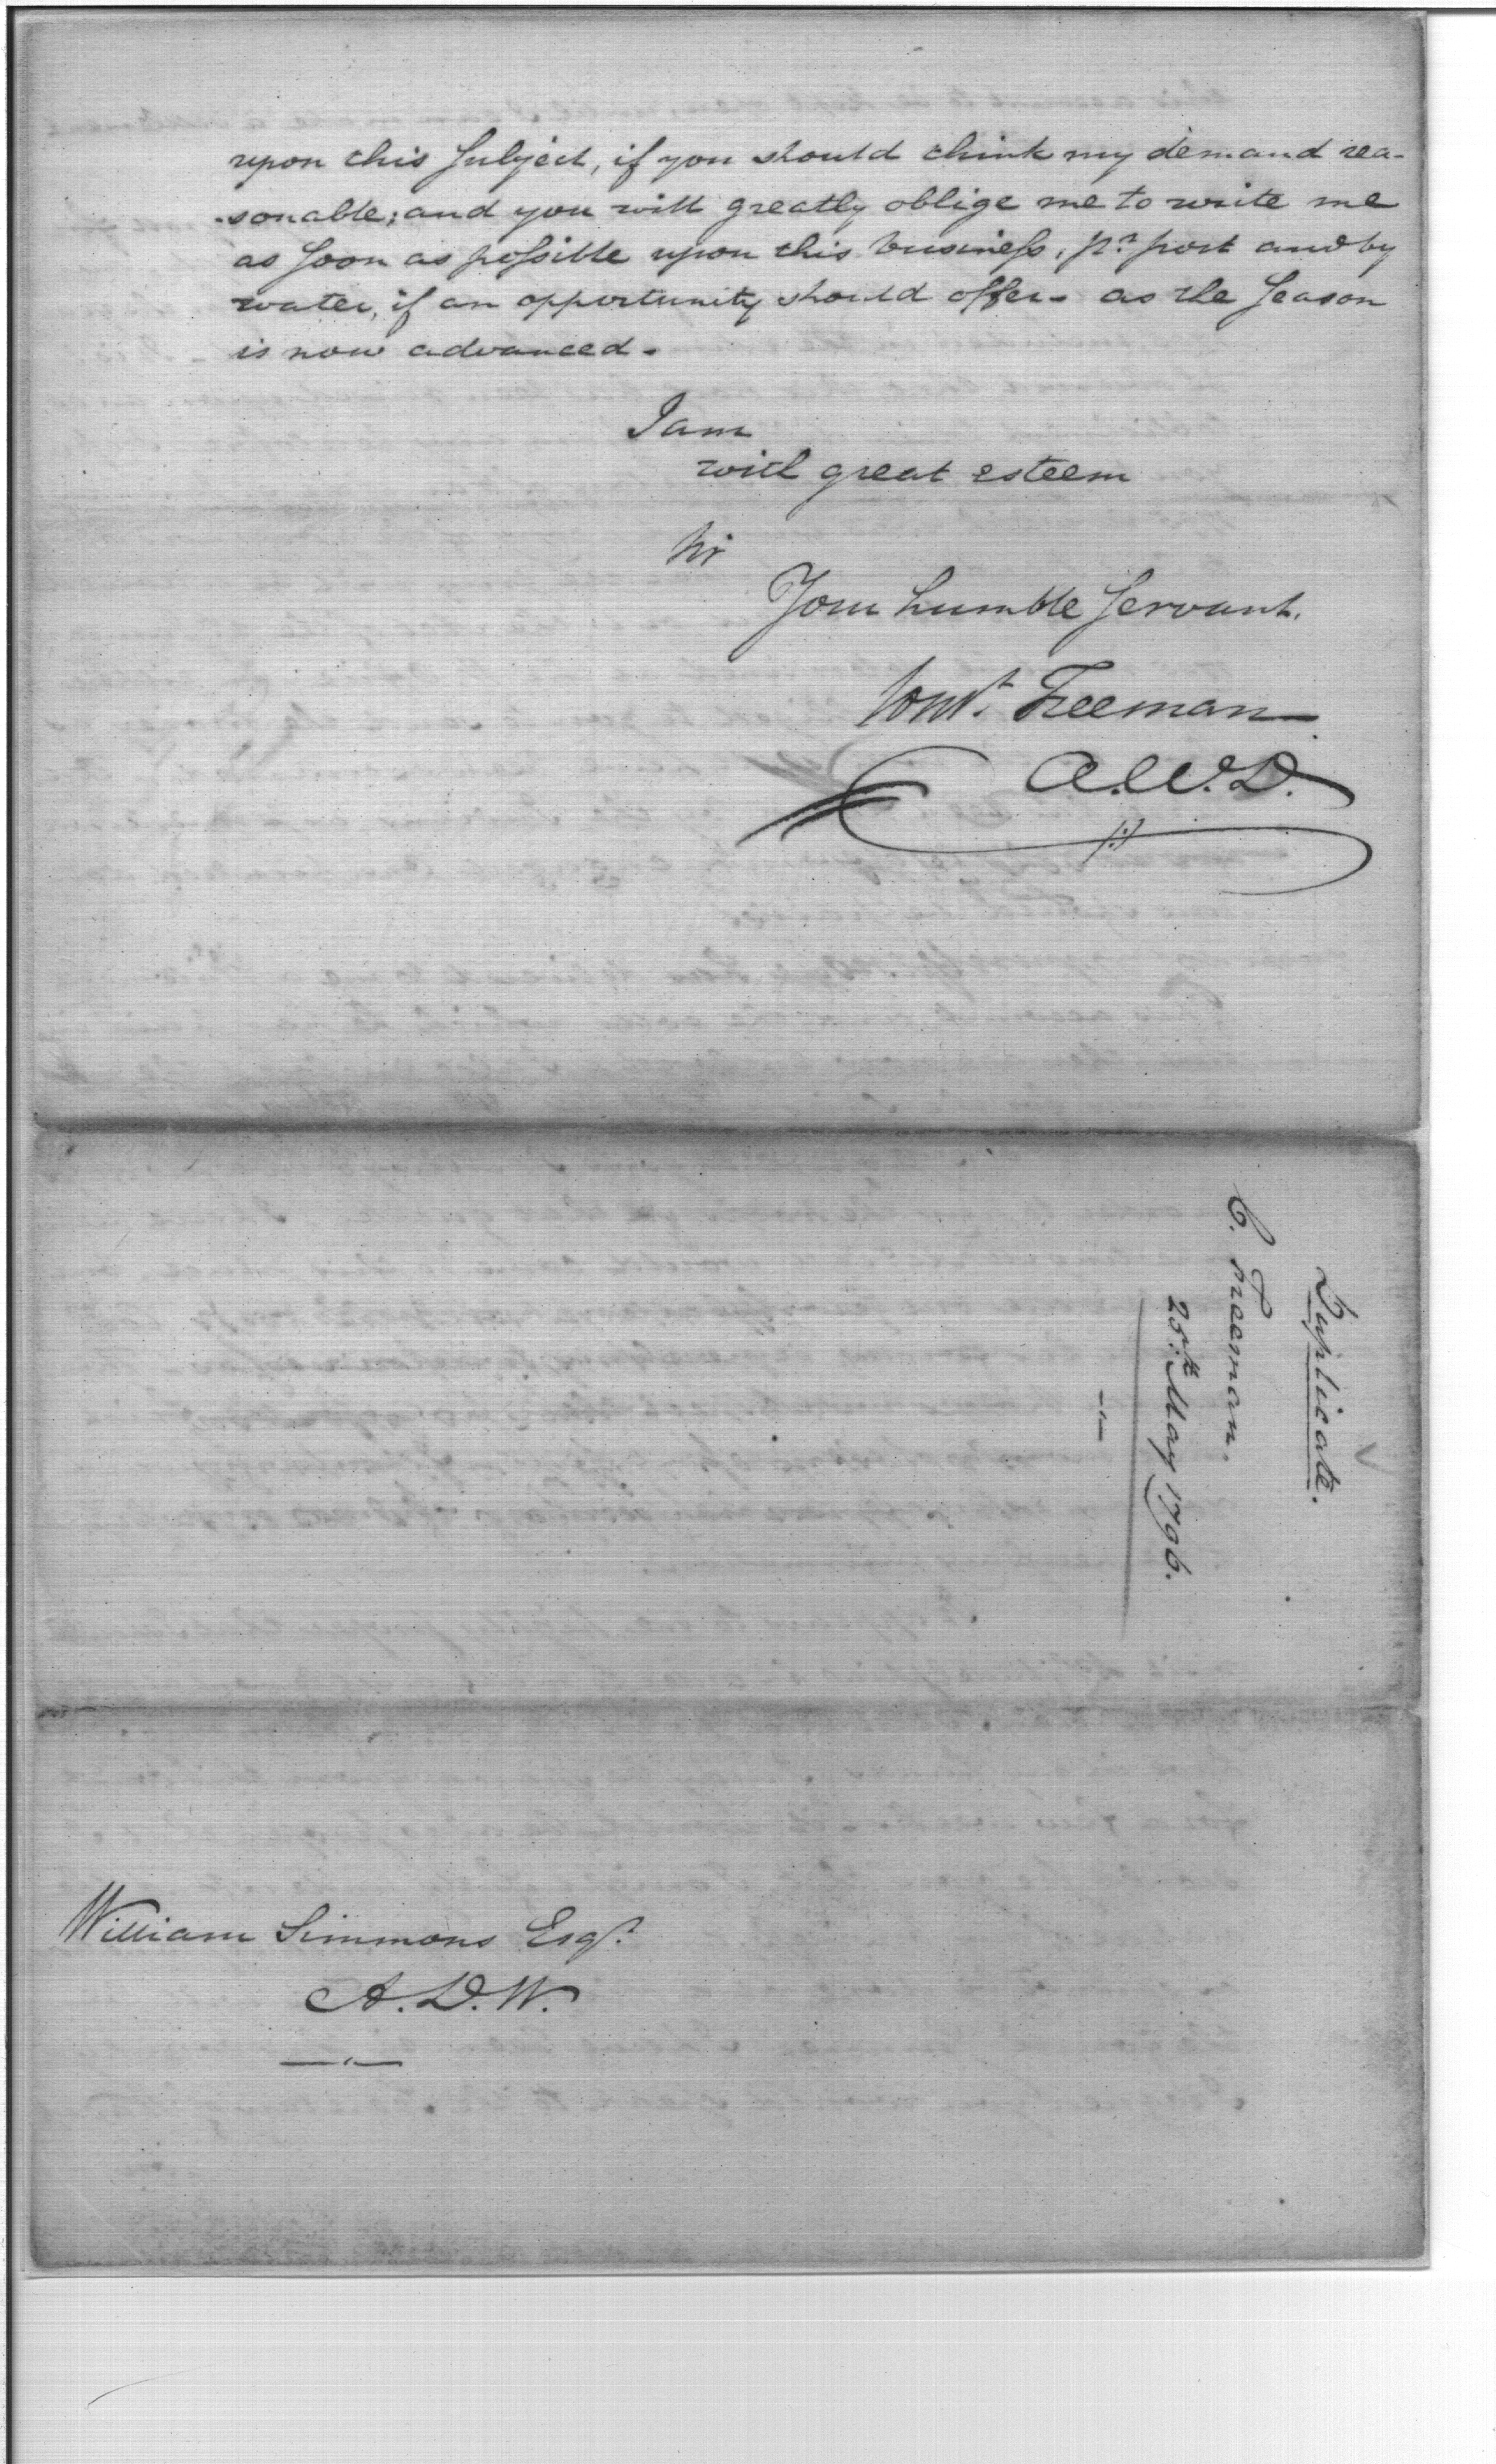 upon this Subject, if you should think my demand rea-
-sonable; and you will greatly oblige me to write me
as soon as possible upon this business, pr. post and by
water, if an opportunity should offer - as the Season
is now advanced -
I am
with great esteem
Sir
Your humble Servant.
Const. Freeman
A.W.D.
Duplicate.
C. Freeman.
25th. May 1796.
William Simmons Esqr.
A.D.W.